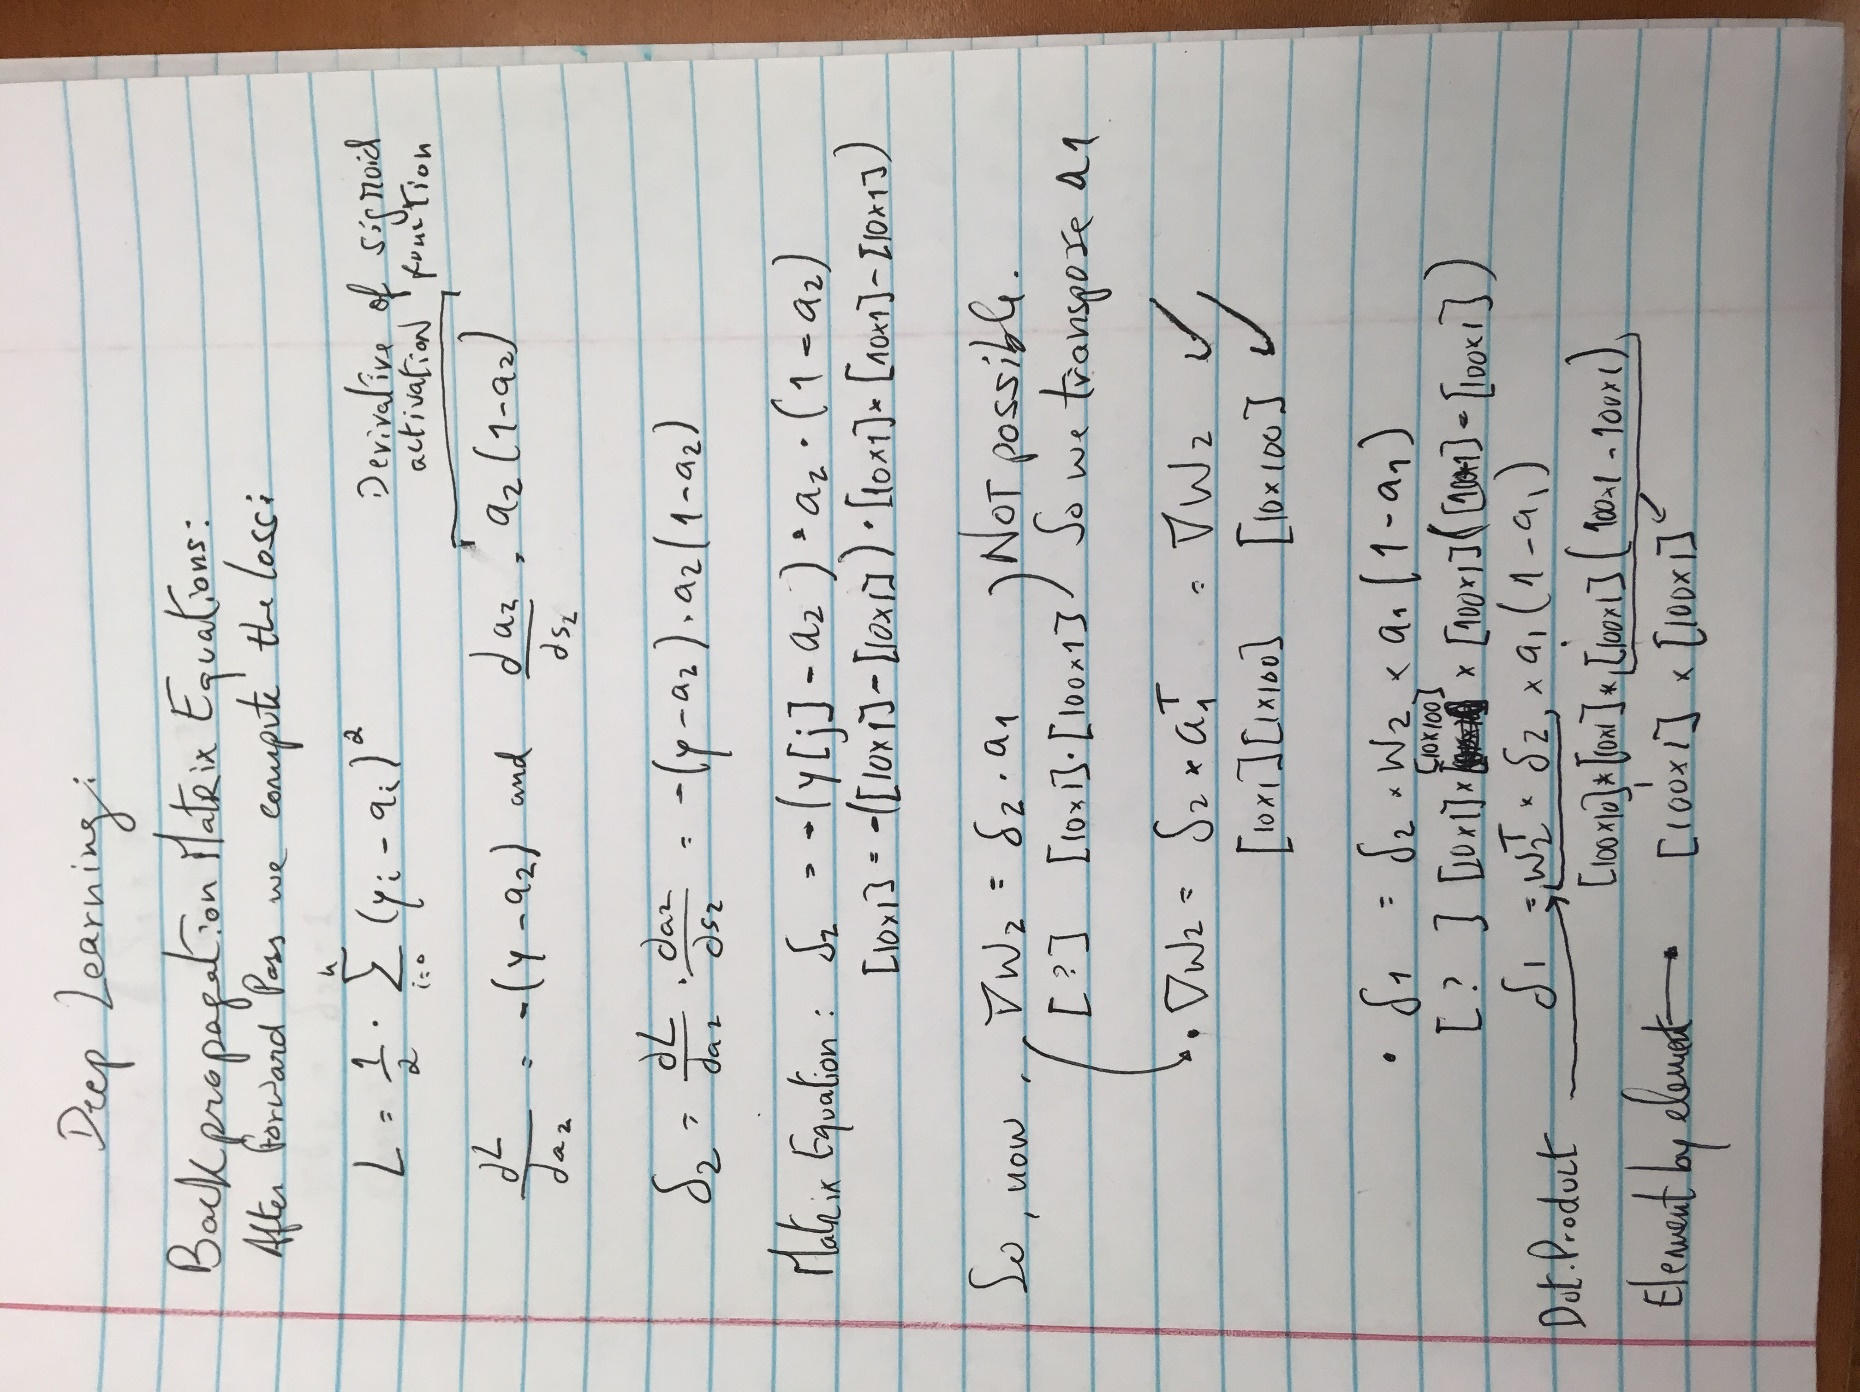 Deep Learning:
Backpropagation Matrix Equations:
After Forward Pass we compute the loss:
L = 1/2 · Σ_{i=0}^{n} (y_i - a_i)^2
Derivative of sigmoid
activation function
∂L/∂a_2 = -(y - a_2) and ∂a_2/∂s_2 = a_2(1-a_2)
δ_2 = ∂L/∂a_2 · ∂a_2/∂s_2 = -(y-a_2)·a_2(1-a_2)
Matrix Equation: δ_2 = -(y[j] - a_2) · a_2 · (1 - a_2)
[10x1] = -([10x1] - [10x1]) · [10x1] * [10x1] - [10x1])
So, now, ∇W_2 = δ_2 · a_1 ) NOT possible.
[?] [10x1]·[100x1] ) So we transpose a1
• ∇W_2 = δ_2 × a_1^T = ∇W_2 ✓
[10x1][1x100] [10x100] ✓
• δ_1 = δ_2 × W_2 × a_1 (1 - a_1)
[?] [10x1] × [10x100] × [100x1] ( - [100x1])
δ_1 = W_2^T × δ_2 × a_1 (1 - a_1)
[100x10]*[10x1]*[100x1](100x1 - 100x1)
Dot.Product
Element by element → [100x1] × [100x1]